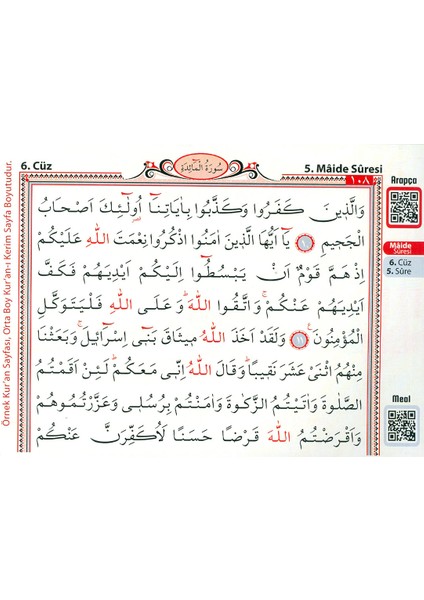 6. Cüz
سُورَةُ الْمَائِدَةِ
5. Mâide Sûresi
١٠٨
Arapça
وَالَّذِينَ كَفَرُوا وَكَذَّبُوا بِاٰيَاتِنَٓا اُولٰٓئِكَ اَصْحَابُ
الْجَحِيمِ ﴿١٠﴾ يَٓا اَيُّهَا الَّذِينَ اٰمَنُوا اذْكُرُوا نِعْمَتَ اللّٰهِ عَلَيْكُمْ
اِذْ هَمَّ قَوْمٌ اَنْ يَبْسُطُٓوا اِلَيْكُمْ اَيْدِيَهُمْ فَكَفَّ
اَيْدِيَهُمْ عَنْكُمْۚ وَاتَّقُوا اللّٰهَۜ وَعَلَى اللّٰهِ فَلْيَتَوَكَّلِ
الْمُؤْمِنُونَ۟ ﴿١١﴾ وَلَقَدْ اَخَذَ اللّٰهُ مِيثَاقَ بَنِٓي اِسْرَٓائِيلَۚ وَبَعَثْنَا
مِنْهُمُ اثْنَيْ عَشَرَ نَقِيبًاۜ وَقَالَ اللّٰهُ اِنِّي مَعَكُمْۜ لَئِنْ اَقَمْتُمُ
الصَّلٰوةَ وَاٰتَيْتُمُ الزَّكٰوةَ وَاٰمَنْتُمْ بِرُسُلِي وَعَزَّرْتُمُوهُمْ
وَاَقْرَضْتُمُ اللّٰهَ قَرْضًا حَسَنًا لَاُكَفِّرَنَّ عَنْكُمْ
Mâide
Sûresi
6. Cüz
5. Sûre
Meal
Örnek Kur'an Sayfası, Orta Boy Kur'an-ı Kerim Sayfa Boyutudur.